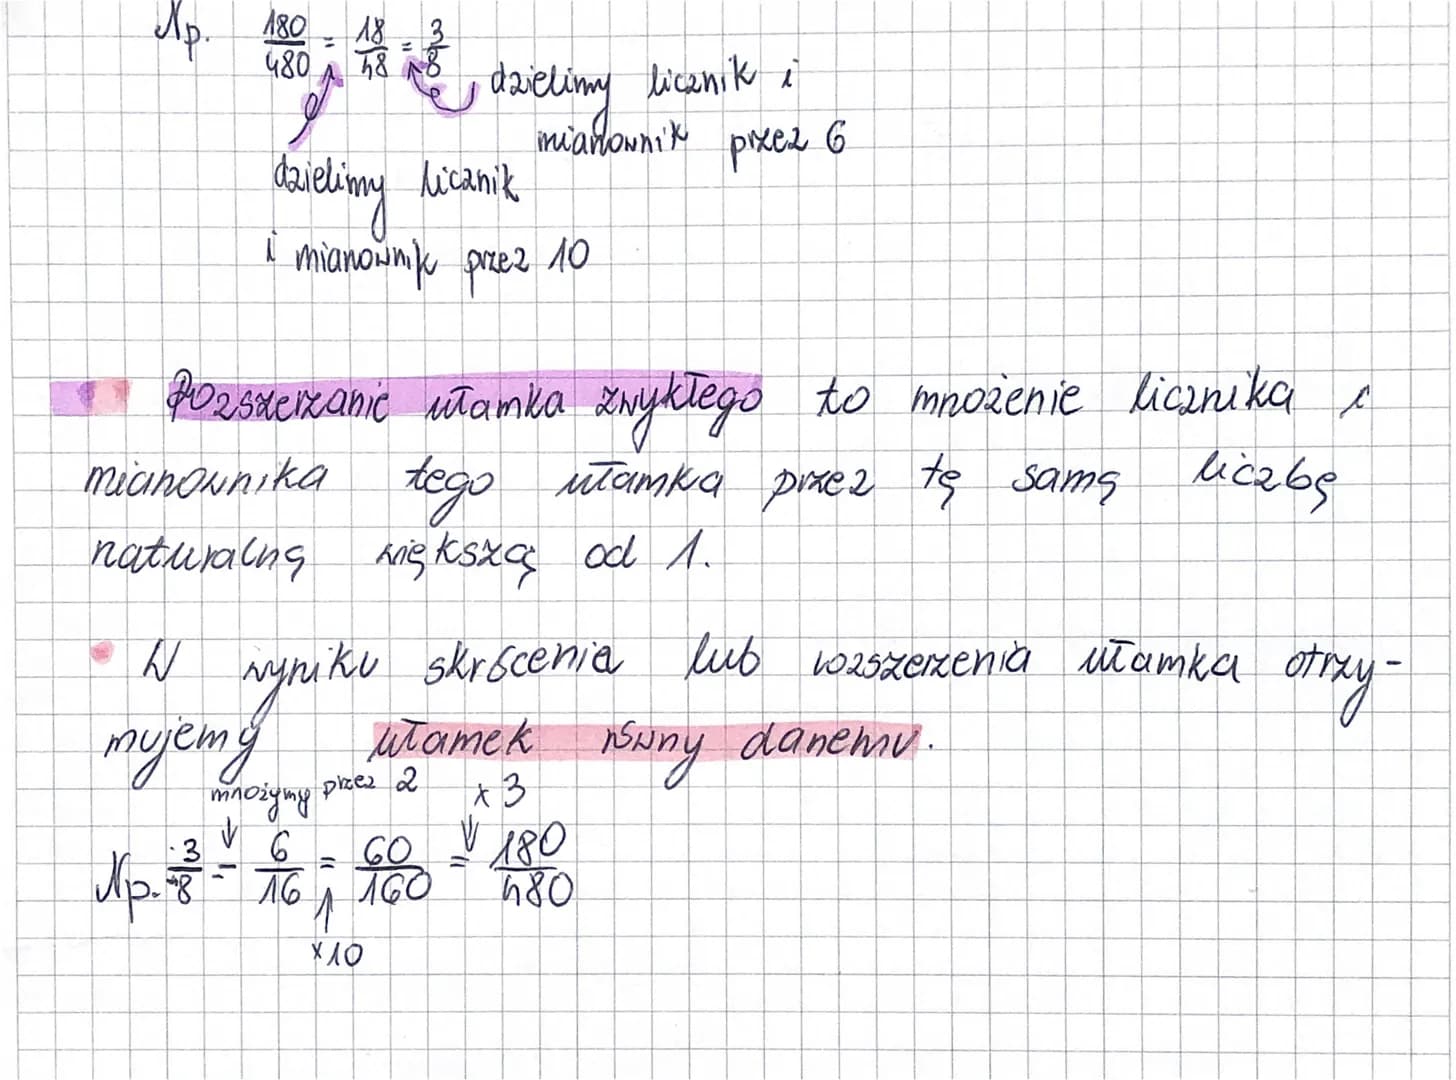 Np. 180/480 = 18/48 = 3/8
dzielimy licznik i
mianownik przez 6
dzielimy licznik
i mianownik przez 10
Rozszerzanie ułamka zwykłego to mnożenie licznika i
mianownika tego ułamka przez tę samą liczbę
naturalną większą od 1.
• W wyniku skrócenia lub rozszerzenia ułamka otrzy-
mujemy ułamek równy danemu.
mnożymy przez 2 x 3
Np. 3/8 = 6/16 = 60/160 = 180/480
x10